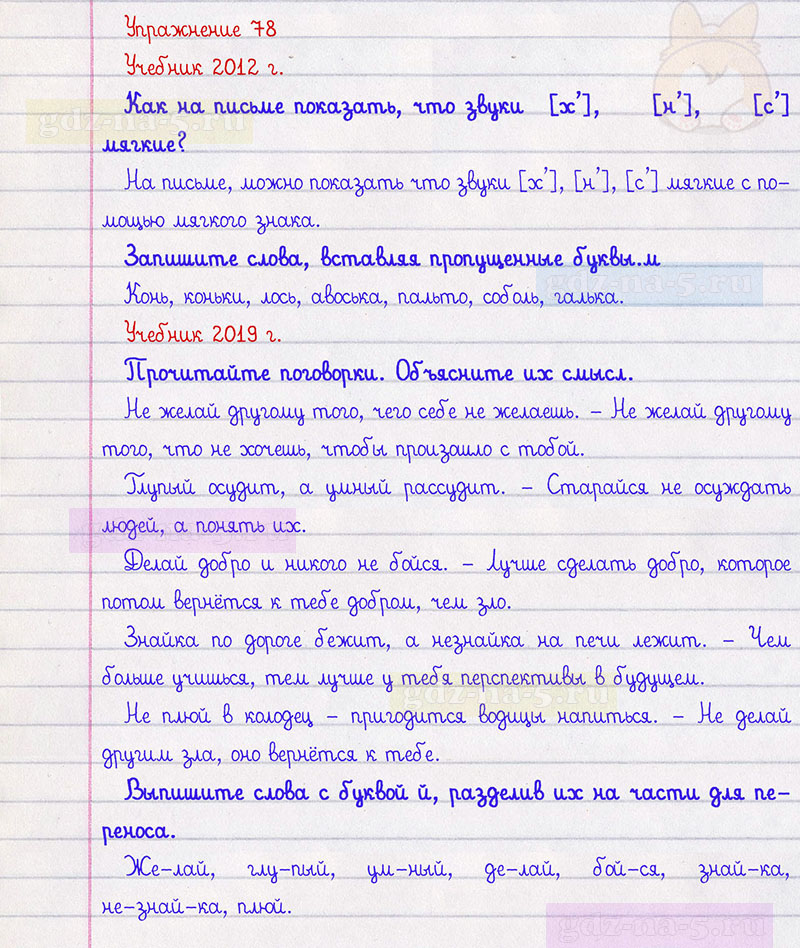 Упражнение 78
Учебник 2012 г.
Как на письме показать, что звуки [х’], [н’], [с’]
gdz-na-5.ru
мягкие?
На письме, можно показать что звуки [х’], [н’], [с’] мягкие с по-
мощью мягкого знака.
Запишите слова, вставляя пропущенные буквы.м
gdz-na-5.ru
Конь, коньки, лось, авоська, пальто, соболь, галька.
Учебник 2019 г.
Прочитайте поговорки. Объясните их смысл.
Не желай другому того, чего себе не желаешь. – Не желай другому
того, что не хочешь, чтобы произошло с тобой.
Глупый осудит, а умный рассудит. – Старайся не осуждать
людей, а понять их.
gdz-na-5.ru
Делай добро и никого не бойся. – Лучше сделать добро, которое
потом вернётся к тебе добром, чем зло.
Знайка по дороге бежит, а незнайка на печи лежит. – Чем
больше учишься, тем лучше у тебя перспективы в будущем.
gdz-na-5.ru
Не плюй в колодец – пригодится водицы напиться. – Не делай
другим зла, оно вернётся к тебе.
Выпишите слова с буквой й, разделив их на части для пе-
реноса.
Же-лай, глу-пый, ум-ный, де-лай, бой-ся, знай-ка,
не-знай-ка, плюй.
gdz-na-5.ru